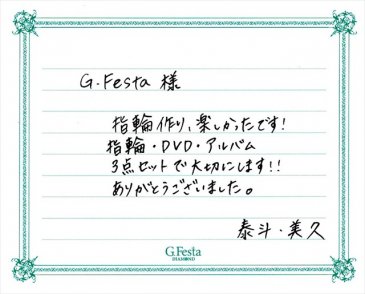 G.Festa 様
指輪作り、楽しかったです!
指輪・DVD・アルバム
3点セットで大切にします!!
ありがとうございました。
泰斗・美久
G.Festa
DIAMOND